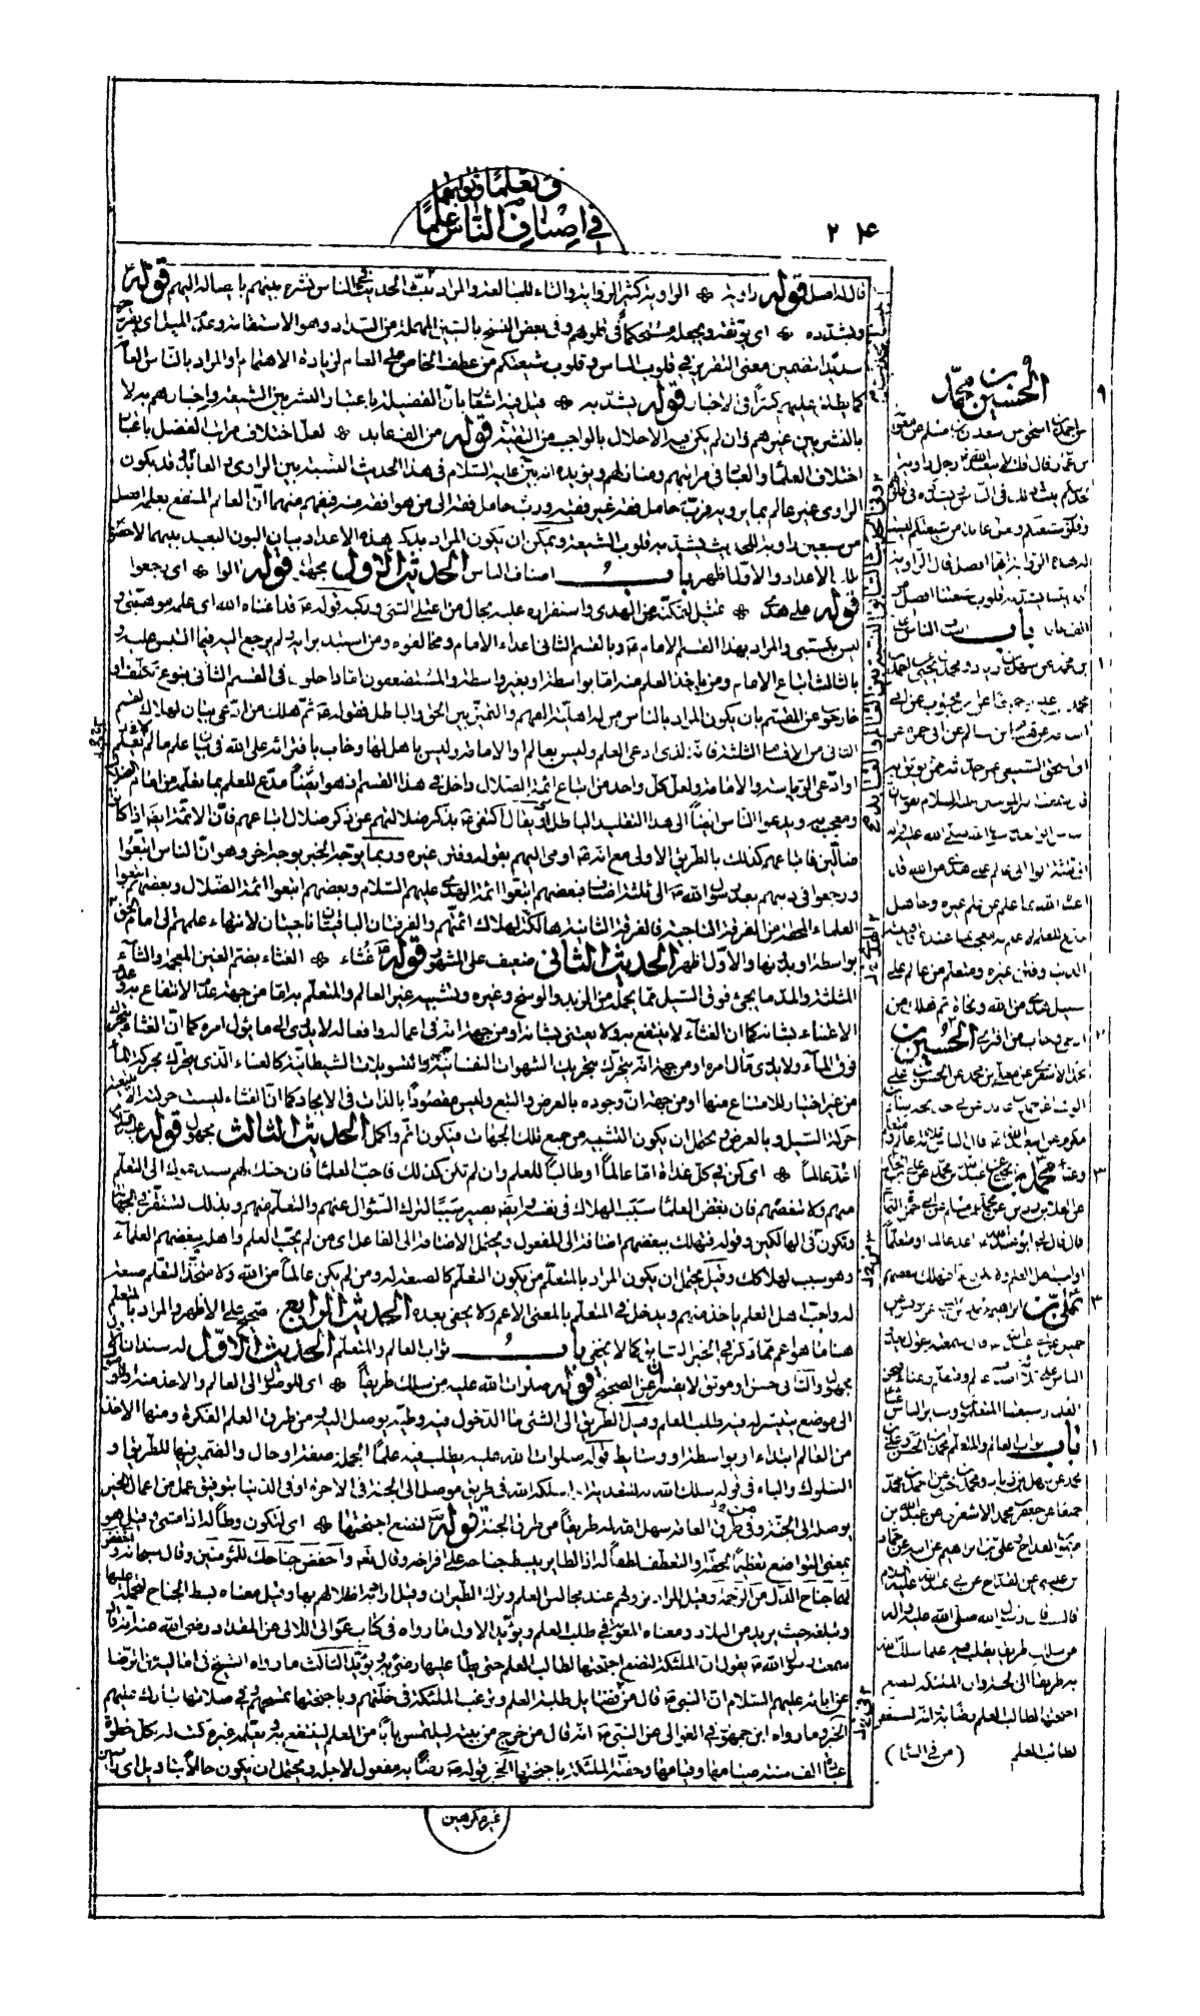 وتعلمها وثوابهما
في اصناف الناس علمًا
٢٤
فالله اصل قوله راوية الراوية كثير الرواية والتاء للمبالغة والمراد ببث الحديث في الناس نشره بينهم بايصاله اليهم قوله
ويشدده اى يوثقه ويجعله مستحكماً في قلوبهم وفى بعض النسخ بالسين المهملة من السداد وهو الاستقامة وعدم الميل اى
سديدا بتضمين معنى التقرير في قلوب الناس وقلوب شيعتكم من عطف الخاص على العام لزيادة الاهتمام او المراد بالناس العامة
كما يطلق عليهم كثيراً فى الاخبار قوله يشد به قيل فيه اشعار بان الفضيلة باعتبار النشر بين الشيعة واخبارهم به لا
بالنشر بين غيرهم وان لم يكن فيه الاخلال بالواجب من التقية قوله من الف عابد لعل اختلاف مراتب الفضل باعتبار
اختلاف العلماء والعباد في مراتبهم ومنازلهم ويؤيده انه بين عليه السلام فى هذا الحديث النسبة بين الراوى والعابد وقد يكون
الراوى غير عالم بما يرويه فرب حامل فقه غير فقيه ورب حامل فقه الى من هو افقه منه فيفهم منهما ان العالم المنتفع بعلمه افضل
من سبعين راوية للحديث يشد به قلوب الشيعة ويمكن ان يكون المراد بذكر هذه الاعداد بيان البون البعيد بينهما لاخصوص
تلك الاعداد والاول اظهر باب اصناف الناس الحديث الاول مجهول قوله آلوا اى رجعوا
قوله على هدى تمثيل لتمكنه من الهدى واستقراره عليه بحال من اعتلى الشئ وركبه قوله قد اغناه الله اى علمه موهبتى و
ليس بكسبى والمراد بهذا القسم الامام ع وبالقسم الثانى اعداء الامام ومخالفوه ومن استبد برايه ولم يرجع اليه فيما التبس عليه و
بالثالث اتباع الامام ومن ياخذ العلم منه اما بواسطة او بغير واسطة والمستضعفون اما داخلون فى القسم الثانى بنوع تكلف او
خارجون عن المقسم بان يكون المراد بالناس من له اهلية الفهم والتميز بين الحق والباطل فقوله ع ثم هلك من ادعى بيان لهلاك القسم
الثانى من الاقسام الثلثة فانه الذى ادعى العلم وليس بعالم او الامامة وليس باهل لها وخاب بافترائه على الله فى بيان علم ما لم يعلم
او ادعى الرياسة والامامة ولعل كل واحد من اتباع ائمة الضلال داخل فى هذا القسم فهو ايضاً مدع للعلم بما تعلمه من امام الضلالة
ومعجب به ويدعو الناس ايضاً الى هذا التقليد الباطل او يقال اكتفى ع بذكر ضلالتهم عن ذكر ضلال اتباعهم فان الائمة اذا كانوا
ضالين فاتباعهم كذلك بالطريق الاولى مع انه ع اومى اليهم بقوله وفتن غيره وربما يوجه الخبر بوجه اخر وهو ان الناس اتبعوا
ورجعوا فى دينهم بعد رسول الله ص الى ثلثة اصناف فبعضهم اتبعوا ائمة الهدى عليهم السلام وبعضهم اتبعوا ائمة الضلال وبعضهم اتبعوا
العلماء المحقة من الفرقة الناجية فالفرقة الثانية هالكة لهلاك ائمتهم والفرقتان الباقيتان ناجيتان لانتهاء علمهم الى امام الحق
بواسطة او بدونها والاول اظهر الحديث الثانى ضعيف على المشهور قوله غثاء الغثاء بضم الغين المعجمة والثاء
المثلثة والمد ما يجئ فوق السيل مما يحمله من الزبد والوسخ وغيره وتشبيه غير العالم والمتعلم به اما من جهة عدم الانتفاع به و
الاعتناء بشانه كما ان الغثاء لا ينتفع به ولا يعتنى بشانه او من جهة انه فى اعماله وافعاله لا يدرى الى ما يئول امره كما ان الغثاء يتحرك
فوق الماء ولا يدرى مآل امره او من جهة انه يتحرك بتحريك الشهوات النفسانية والتسويلات الشيطانية كالغثاء الذى يتحرك بحركة الماء
من غير اختيار للامتناع منها او من جهة ان وجوده بالعرض والتبع وليس مقصوداً بالذات فى الايجاد كما ان الغثاء ليست حركته الا بتبعية
حركة السيل وبالعرض ويحتمل ان يكون التشبيه من جميع تلك الجهات فيكون اتم واكمل الحديث الثالث مجهول قوله
اغد عالماً اى كن فى كل غداة اما عالماً او طالباً للعلم وان لم تكن كذلك فاحب العلماء فان حبك لهم سيدعوك الى التعلم
منهم ولا تبغضهم فان بغض العلماء سبب للهلاك فى نفسه وايضاً يصير سبباً لترك السؤال عنهم والتعلم منهم وبذلك تستقر فى الجهالة
وتكون فى الهالكين وقوله فتهلك ببغضهم اضافة الى المفعول ويحتمل الاضافة الى الفاعل اى من لم يحب العلم واهله يبغضهم العلماء
وهو سبب لهلاكك وقيل يحتمل ان يكون المراد بالمتعلم من يكون التعلم كالصنعة له ومن لم يكن عالماً من الله ولا متخذاً التعلم صنعة
له واحب اهل العلم ياخذ منهم ويدخل فى المتعلم بالمعنى الاعم ولا يخفى بعده الحديث الرابع صحيح على الاظهر والمراد بالمتعلم
هنا ما هو اعم مما ذكر فى الخبر السابق كما لا يخفى باب ثواب العالم والمتعلم الحديث الاول له سندان الاول
مجهول والثانى حسن او موثق لا يقصران عن الصحيح قوله صلوات الله عليه من سلك طريقاً اى للوصول الى العالم والاخذ منه او للوصول
الى موضع يتيسر له فيه طلب العلم وقيل الطريق الى الشئ ما الدخول فيه وطيه يوصل اليه من طرق العلم الفكرة ومنها الاخذ
من العالم ابتداء او بواسطة او وسائط قوله صلوات الله عليه يطلب فيه علماً الجملة صفة او حال والضمير فيها للطريق او
السلوك والباء فى قوله سلك الله به للتعدية اى اسلكه الله فى طريق موصل الى الجنة فى الاخرة او فى الدنيا بتوفيق عمل من اعمال الخير
يوصله الى الجنة وفى طرق العامة سهل الله له طريقاً من طرق الجنة قوله لتضع اجنحتها اى لتكون وطأ له اذا مشى وقيل هو
بمعنى التواضع تعظيماً لحقه او التعطف لطفاً له اذ الطاير يبسط جناحه على افراخه وقال تعالى واخفض جناحك للمؤمنين وقال سبحانه واخفض
لهما جناح الذل من الرحمة وقيل المراد نزولهم عند مجالس العلم وترك الطيران وقيل اراد به اظلالهم بها وقيل معناه بسط الجناح لتحمله عليها
وتبلغه حيث يريد من البلاد ومعناه المعونة فى طلب العلم ويؤيد الاول ما رواه فى كتاب غوالى اللآلى عن المقداد رضى الله عنه انه قال
سمعت رسول الله ص يقول ان الملئكة لتضع اجنحتها لطالب العلم حتى يطأ عليها رضى به ويؤيد الثالث ما رواه الشيخ فى اماليه عن الرضا
عن ابائه عليهم السلام ان النبى ص قال من فضايل طلبة العلم وترغب الملئكة فى خلتهم وباجنحتها تمسحهم وفى صلاتها تبارك عليهم
الخبر وما رواه ابن جمهور فى الغوالى عن النبى ص انه قال من خرج من بيته ليلتمس باباً من العلم لينتفع به ويعلمه غيره كتب له بكل خطوة
عبادة الف سنة صيامها وقيامها وحفته الملئكة باجنحتها الخبر قوله ع رضاً به مفعول لاجله ويحتمل ان يكون حالاً بتاويل اى راضين
غير مكرهين
٩ الحسين بن محمد
عن احمد بن اسحق عن سعدان بن مسلم عن معوية
بن عمار قال قلت لابى عبدالله ع رجل راوية
لحديثكم يبث ذلك فى الناس ويشدده فى قلوبهم
وقلوب شيعتكم ولعل عابداً من شيعتكم ليست
له هذه الرواية ايهما افضل قال الراوية
لحديثنا يشد به قلوب شيعتنا افضل من
الف عابد باب اصناف الناس
١ على بن محمد عن سهل بن زياد ومحمد بن يحيى عن احمد بن
محمد بن عيسى جميعا عن ابن محبوب عن ابى
اسامة عن هشام بن سالم عن ابى حمزة عن
ابى اسحق السبيعى عمن حدثه ممن يوثق به
قال سمعت امير المؤمنين عليه السلام يقول ان
الناس آلوا بعد رسول الله صلى الله عليه واله
الى ثلثة آلوا الى عالم على هدى من الله قد
اغناه الله بما علم عن علم غيره وجاهل
مدع للعلم لا علم له معجب بما عنده قد فتنته
الدنيا وفتن غيره ومتعلم من عالم على
سبيل هدى من الله ونجاة ثم هلك من
ادعى وخاب من افترى ٢ الحسين بن
محمد الاشعرى عن معلى بن محمد عن الحسن بن على
الوشاء عن احمد بن عائذ عن ابى خديجة سالم بن
مكرم عن ابى عبدالله ع قال الناس ثلثة عالم ومتعلم
وغثاء ٣ محمد بن يحيى عن عبدالله بن محمد عن على بن الحكم
عن العلاء بن رزين عن محمد بن مسلم عن ابى حمزة الثمالى
قال قال لى ابو عبدالله ع اغد عالما او متعلماً
او احب اهل العلم ولا تكن رابعا فتهلك ببغضهم
٤ على بن ابراهيم عن محمد بن عيسى عن يونس عن
جميل عن ابى عبدالله ع قال سمعته يقول يغدو
الناس على ثلثة اصناف عالم ومتعلم وغثاء فنحن
العلماء وشيعتنا المتعلمون وساير الناس غثاء
باب ثواب العالم والمتعلم ١ محمد بن الحسن وعلى بن
محمد عن سهل بن زياد ومحمد بن يحيى عن احمد بن محمد
جميعا عن جعفر بن محمد الاشعرى عن عبدالله بن
ميمون القداح وعلى بن ابراهيم عن ابيه عن حماد
بن عيسى عن القداح عن ابى عبدالله عليه السلام
قال قال رسول الله صلى الله عليه واله
من سلك طريقا يطلب فيه علما سلك الله
به طريقا الى الجنة وان الملئكة لتضع
اجنحتها لطالب العلم رضا به وانه ليستغفر
لطالب العلم (من فى السماء)